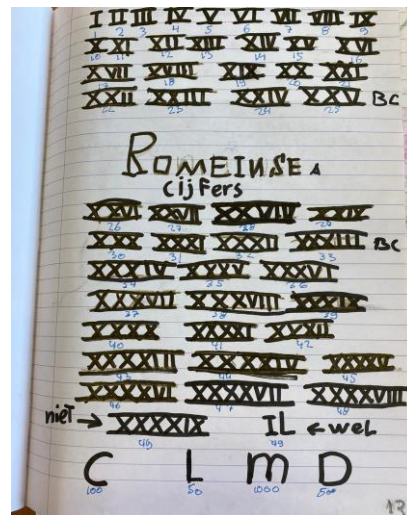 I II III IV V VI VII VIII IX
1 2 3 4 5 6 7 8 9
X XI XII XIII XIV XV XVI
10 11 12 13 14 15 16
XVII XVIII XIX XX XXI
17 18 19 20 21
XXII XXIII XXIV XXV BC
22 23 24 25
ROMEINSE
cijfers
XXVI XXVII XXVIII XXIV
26 27 28 29
XXX XXXI XXXII XXXIII BC
30 31 32 33
XXXIV XXXV XXXVI
34 35 36
XXXVII XXXVIII XXXIX
37 38 39
XXXX XXXXI XXXXII
40 41 42
XXXXIII XXXXIV XXXXV
43 44 45
XXXXVI XXXXVII XXXXVIII
46 47 48
niet → XXXXIX IL ← wel
49 49
C L M D
100 50 1000 500